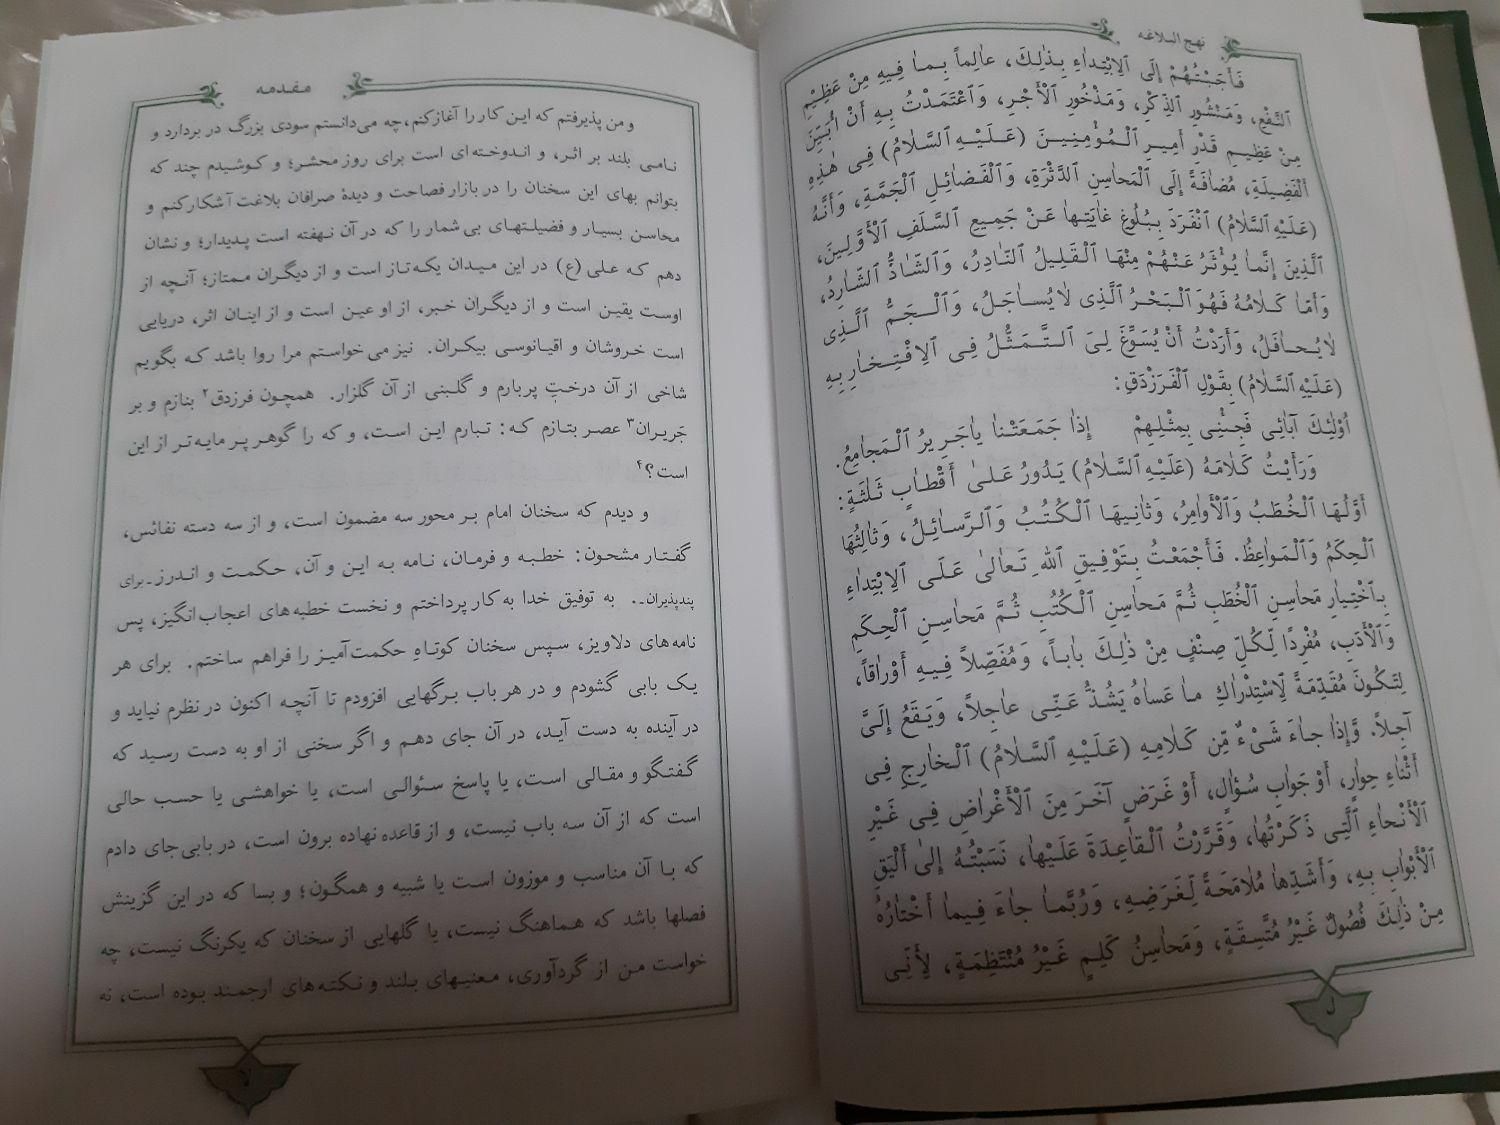 نهج البلاغه
فَأَجَبْتُهُمْ إِلَى ٱلِابْتِداءِ بِذٰلِكَ، عالِماً بِما فِيهِ مِنْ عَظِيمِ
ٱلنَّفْعِ، وَمَنْشُورِ ٱلذِّكْرِ، وَمَذْخُورِ ٱلْأَجْرِ، وَٱعْتَمَدْتُ بِهِ أَنْ أُبَيِّنَ
مِنْ عَظِيمِ قَدْرِ أَمِيرِ ٱلْمُؤْمِنِينَ (عَلَيْهِ ٱلسَّلامُ) فِى هٰذِهِ
ٱلْفَضِيلَةِ، مُضافَةً إِلَى ٱلْمَحاسِنِ ٱلدَّثْرَةِ، وَٱلْفَضائِلِ ٱلْجَمَّةِ، وَأَنَّهُ
(عَلَيْهِ ٱلسَّلامُ) ٱنْفَرَدَ بِبُلُوغِ غايَتِها عَنْ جَمِيعِ ٱلسَّلَفِ ٱلْأَوَّلِينَ،
ٱلَّذِينَ إِنَّما يُؤْثَرُ عَنْهُمْ مِنْهَا ٱلْقَلِيلُ ٱلنَّادِرُ، وَٱلشَّاذُّ ٱلشَّارِدُ،
وَأَمّا كَلامُهُ فَهُوَ ٱلْبَحْرُ ٱلَّذِى لا يُساجَلُ، وَٱلْجَمُّ ٱلَّذِى
لا يُحافَلُ، وَأَرَدْتُ أَنْ يُسَوِّغَ لِىَ ٱلتَّمَثُّلُ فِى ٱلِافْتِخارِ بِهِ
(عَلَيْهِ ٱلسَّلامُ) بِقَوْلِ ٱلْفَرَزْدَقِ:
أُولٰئِكَ آبائِى فَجِئْنِى بِمِثْلِهِمْ إِذا جَمَعَتْنا ياجَرِيرُ ٱلْمَجامِعُ.
وَرَأَيْتُ كَلامَهُ (عَلَيْهِ ٱلسَّلامُ) يَدُورُ عَلىٰ أَقْطابٍ ثَلٰثَةٍ:
أَوَّلُهَا ٱلْخُطَبُ وَٱلْأَوامِرُ، وَثانِيهَا ٱلْكُتُبُ وَٱلرَّسائِلُ، وَثالِثُهَا
ٱلْحِكَمُ وَٱلْمَواعِظُ. فَأَجْمَعْتُ بِتَوْفِيقِ ٱللهِ تَعالىٰ عَلَى ٱلِابْتِداءِ
بِٱخْتِيارِ مَحاسِنِ ٱلْخُطَبِ ثُمَّ مَحاسِنِ ٱلْكُتُبِ ثُمَّ مَحاسِنِ ٱلْحِكَمِ
وَٱلْأَدَبِ، مُفْرِدًا لِّكُلِّ صِنْفٍ مِنْ ذٰلِكَ باباً، وَمُفَصِّلاً فِيهِ أَوْراقاً،
لِتَكُونَ مُقَدِّمَةً لِٱسْتِدْراكِ ما عَساهُ يَشُذُّ عَنِّى عاجِلاً، وَيَقَعُ إِلَىَّ
آجِلاً. وَإِذا جاءَ شَىْءٌ مِّن كَلامِهِ (عَلَيْهِ ٱلسَّلامُ) ٱلْخارِجِ فِى
أَثْناءِ حِوارٍ، أَوْ جَوابِ سُؤالٍ، أَوْ غَرَضٍ آخَرَ مِنَ ٱلْأَغْراضِ فِى غَيْرِ
ٱلْأَنْحاءِ ٱلَّتِى ذَكَرْتُها، وَقَرَّرْتُ ٱلْقاعِدَةَ عَلَيْها، نَسَبْتُهُ إِلىٰ أَلْيَقِ
ٱلْأَبْوابِ بِهِ، وَأَشَدِّها مُلامَحَةً لِّغَرَضِهِ، وَرُبَّما جاءَ فِيما أَخْتارُهُ
مِنْ ذٰلِكَ فُصُولٌ غَيْرُ مُتَّسِقَةٍ، وَمَحاسِنُ كَلِمٍ غَيْرُ مُنْتَظِمَةٍ، لِأَنِّى
ل
مقدمه
و من پذیرفتم که این کار را آغاز کنم، چه می‌دانستم سودی بزرگ در بردارد و
نامی بلند بر اثر، و اندوخته‌ای است برای روز محشر؛ و کوشیدم چند که
بتوانم بهای این سخنان را در بازار فصاحت و دیدهٔ صرافان بلاغت آشکار کنم و
محاسن بسیار و فضیلتهای بی شمار را که در آن نهفته است پدیدار؛ و نشان
دهم که علی (ع) در این میدان یکه تاز است و از دیگران ممتاز؛ آنچه از
اوست یقین است و از دیگران خبر، از او عین است و از اینان اثر، دریایی
است خروشان و اقیانوسی بیکران. نیز می خواستم مرا روا باشد که بگویم
شاخی از آن درختِ پربارم و گلبنی از آن گلزار. همچون فرزدق۲ بنازم و بر
جَریران۳ عصر بتازم که: تبارم این است، و که را گوهر پر مایه‌تر از این
است؟۴
و دیدم که سخنان امام بر محور سه مضمون است، و از سه دسته نفائس،
گفتار مشحون: خطبه و فرمان، نامه به این و آن، حکمت و اندرز ـ برای
پندپذیران ـ. به توفیق خدا به کار پرداختم و نخست خطبه‌های اعجاب‌انگیز، پس
نامه‌های دلاویز، سپس سخنان کوتاهِ حکمت‌آمیز را فراهم ساختم. برای هر
یک بابی گشودم و در هر باب برگهایی افزودم تا آنچه اکنون در نظرم نیاید و
در آینده به دست آید، در آن جای دهم و اگر سخنی از او به دست رسید که
گفتگو و مقالی است، یا پاسخ سئوالی است، یا خواهشی یا حسب حالی
است که از آن سه باب نیست، و از قاعده نهاده برون است، در بابی جای دادم
که با آن مناسب و موزون است یا شبیه و همگون؛ و بسا که در این گزینش
فصلها باشد که هماهنگ نیست، یا گلهایی از سخنان که یکرنگ نیست، چه
خواست من از گردآوری، معنیهای بلند و نکته‌های ارجمند بوده است، نه
لا